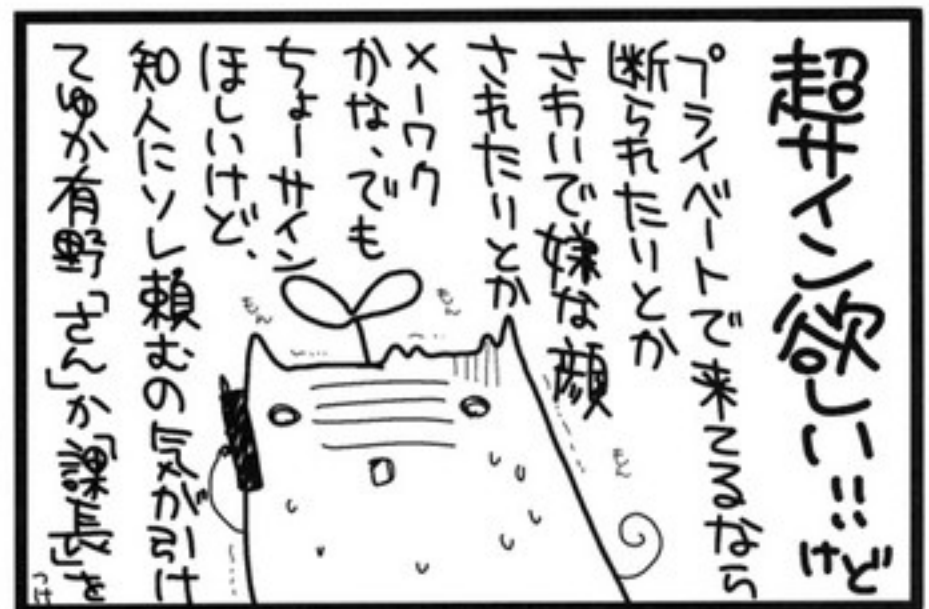 超サイン欲しい!!けど
プライベートで来てるなら
断られたりとか
さわいで嫌な顔
されたりとか
メーワク
かな、でも
ちょーサイン
ほしいけど、
知人にソレ頼むの気が引け
てゆか有野「さん」か「課長」を
つけ
もん
もん
もん